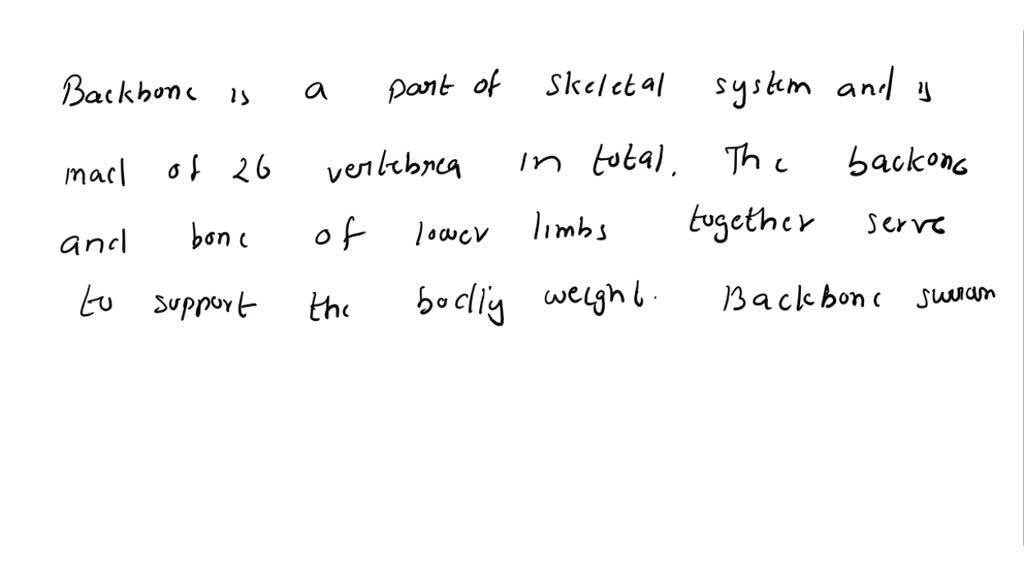 Backbone is a part of skeletal system and is
mad of 26 vertebrea in total. The backone
and bone of lower limbs together serve
to support the bodily weight. Backbone